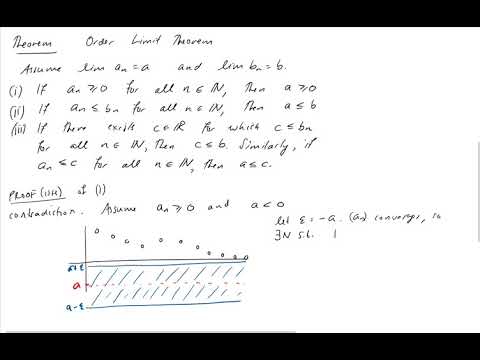 Theorem Order Limit Theorem
Assume lim an = a and lim bn = b.
(i) If an ≥ 0 for all n ∈ ℕ, then a ≥ 0
(ii) If an ≤ bn for all n ∈ ℕ, then a ≤ b
(iii) If there exists c ∈ ℝ for which c ≤ bn
for all n ∈ ℕ, then c ≤ b. Similarly, if
an ≤ c for all n ∈ ℕ, then a ≤ c.
PROOF (ish) of (i)
contradiction. Assume an ≥ 0 and a < 0
let ε = -a. (an) converges, so
∃N s.t. |
a+ε
a
a-ε